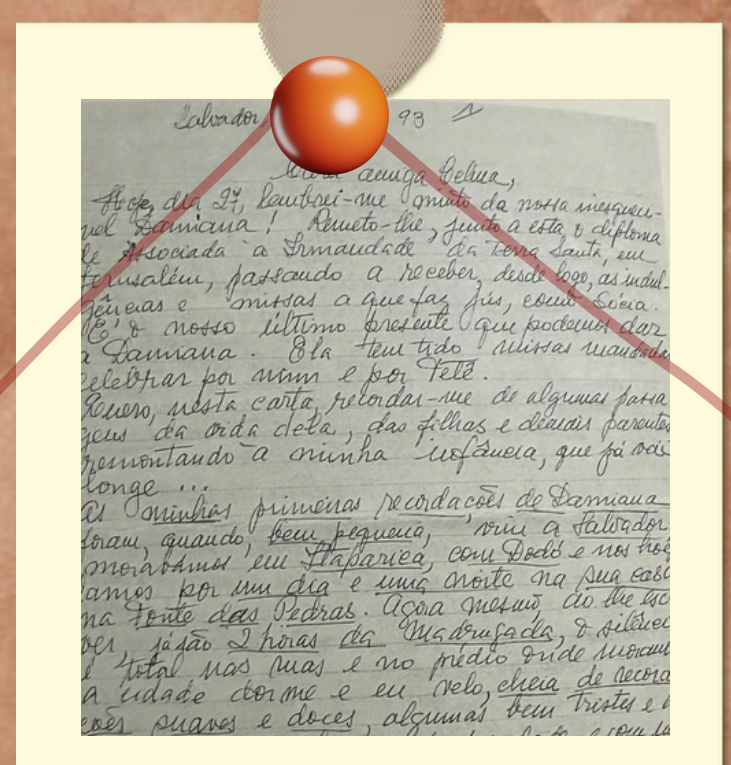 Salvador, 93 1
amiga Celina,
Hoje, dia 27, lembrei-me muito da nossa inesqueci-
vel Damiana! Remeto-lhe, junto a esta, o diploma
de Associada à Irmandade da Terra Santa, em
Jerusalém, passando a receber, desde logo, as indul-
gências e missas a que faz jús, como sócia.
É o nosso último presente que podemos dar
a Damiana. Ela tem tido missas mandadas
celebrar por mim e por Tetê.
Quero, nesta carta, recordar-me de algumas passa
gens da vida dela, das filhas e demais parentes
remontando a minha infância, que já vai
longe ...
As minhas primeiras recordações de Damiana
foram, quando, bem pequena, vim a Salvador
morávamos em Itaparica, com Dodó e nos hos
amos por um dia e uma noite na sua casa
na Fonte das Pedras. Agora mesmo, ao lhe escre
ver, já são 2 horas da Madrugada, o silênci
é total nas ruas e no prédio onde moram
a cidade dorme e eu velo, cheia de recorda
ções suaves e doces, algumas bem tristes e